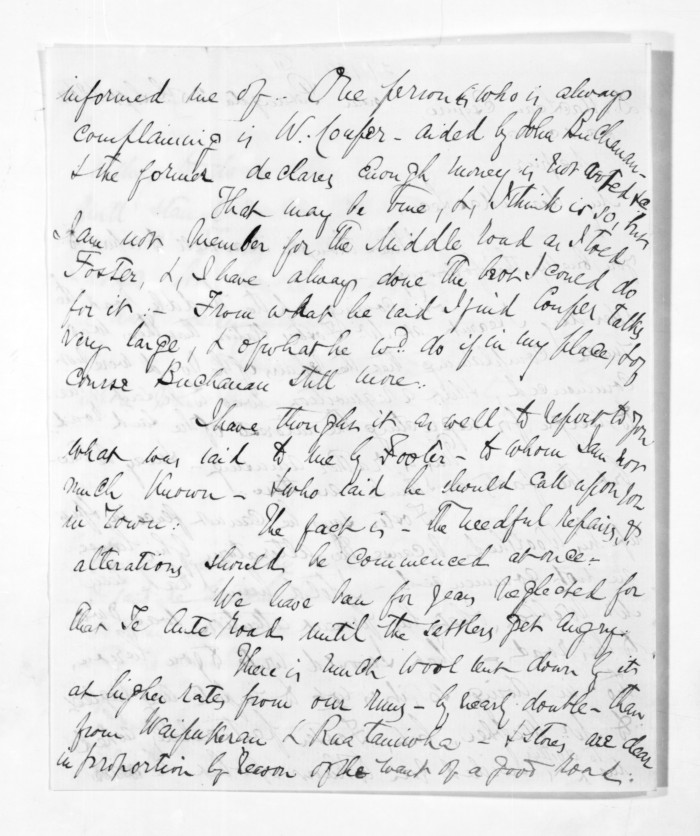 informed me of - One person is who is always
complaining is W. Couper - aided by John Buchanan -
& the former declares enough money is not voted &c
That may be true, &, I think is so, but
I am not Member for the Middle road as I told
Foster, &, I have always done the best I could do
for it :- From what he said I find Couper talks
very large, & of what he wd. do if in my place, & of
course Buchanan still more.
I have thought it as well to report to you
what was said to me by Foster - to whom I am not
much known - & who said he should call upon you
in Town: The fact is - the needful repairs, &
alterations should be commenced at once -
We have been for years neglected for
that Te Aute Road until the settlers get angry.
There is much wool sent down by it
at higher rates from our runs - by nearly double - than
from Waipukurau & Ruataniwha - & stores are dear
in proportion by reason of the want of a good road.